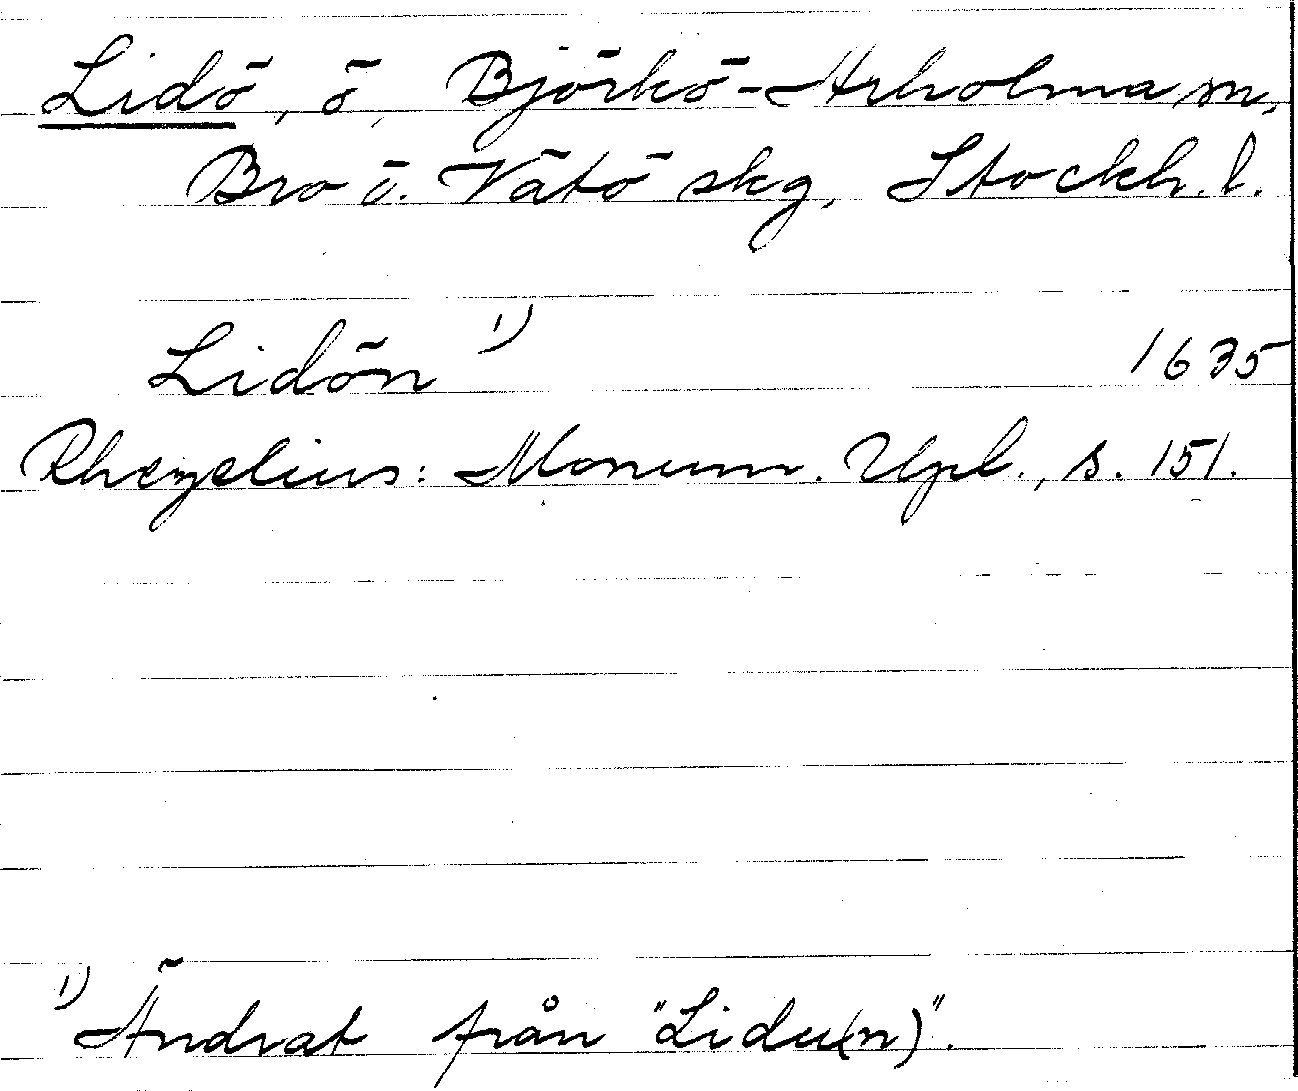 Lidö, ö, Björkö-Arholma sn,
Bro o. Vätö skg, Stockh. l.
Lidön ¹⁾ 1635
Rhezelius: Monum. Upl., s. 151.
¹⁾ Ändrat från "Lidu(n)".